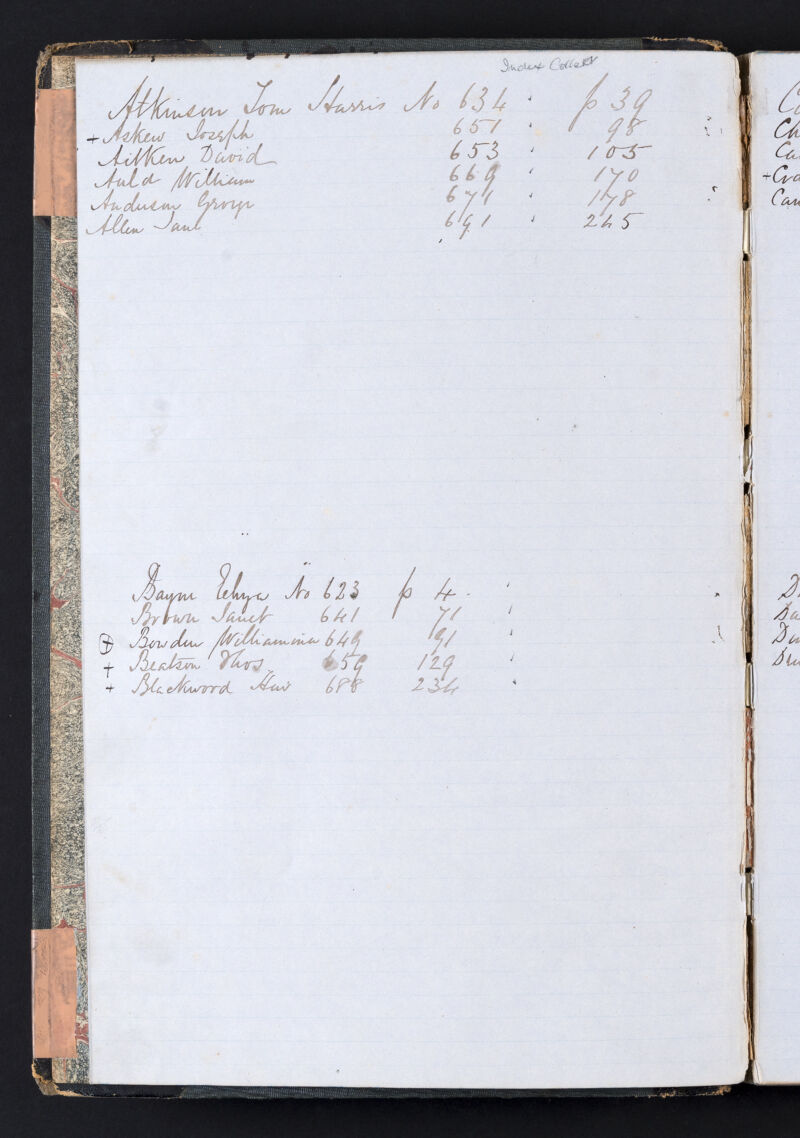 Index Collatd
Atkinson Tom Harris No 634 p 39
+ Askew Joseph 651 98
Aitken David 653 105
Auld William 669 170
Anderson George 671 178
Allen Jane 691 245
No 623 p 4
Brown Janet 641 71
+ Bowden Williamina 649 91
+ Beatson Thos. 659 129
+ Blackwood 688 234